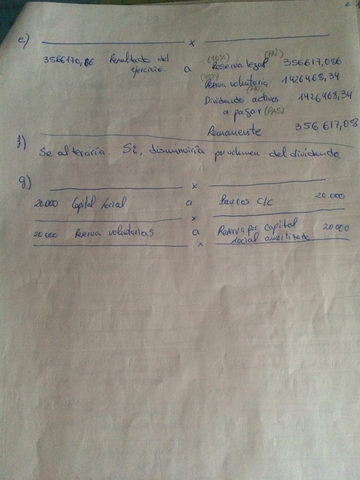 e)
x
3566170,86 Resultado del ejercicio a Reserva legal (10%) (PN) 356617,086
Reserva voluntaria 1426468,34
(PN)
Dividendo activo a pagar (PAS) 1426468,34
Remanente 356617,08
f)
Se alteraría. Sí, disminuiría por volumen del dividendo
g)
x
20.000 Capital Social a Bancos C/C 20.000
x
20.000 Reserva voluntarias a Reserva por Capital Social amortizado 20.000
x